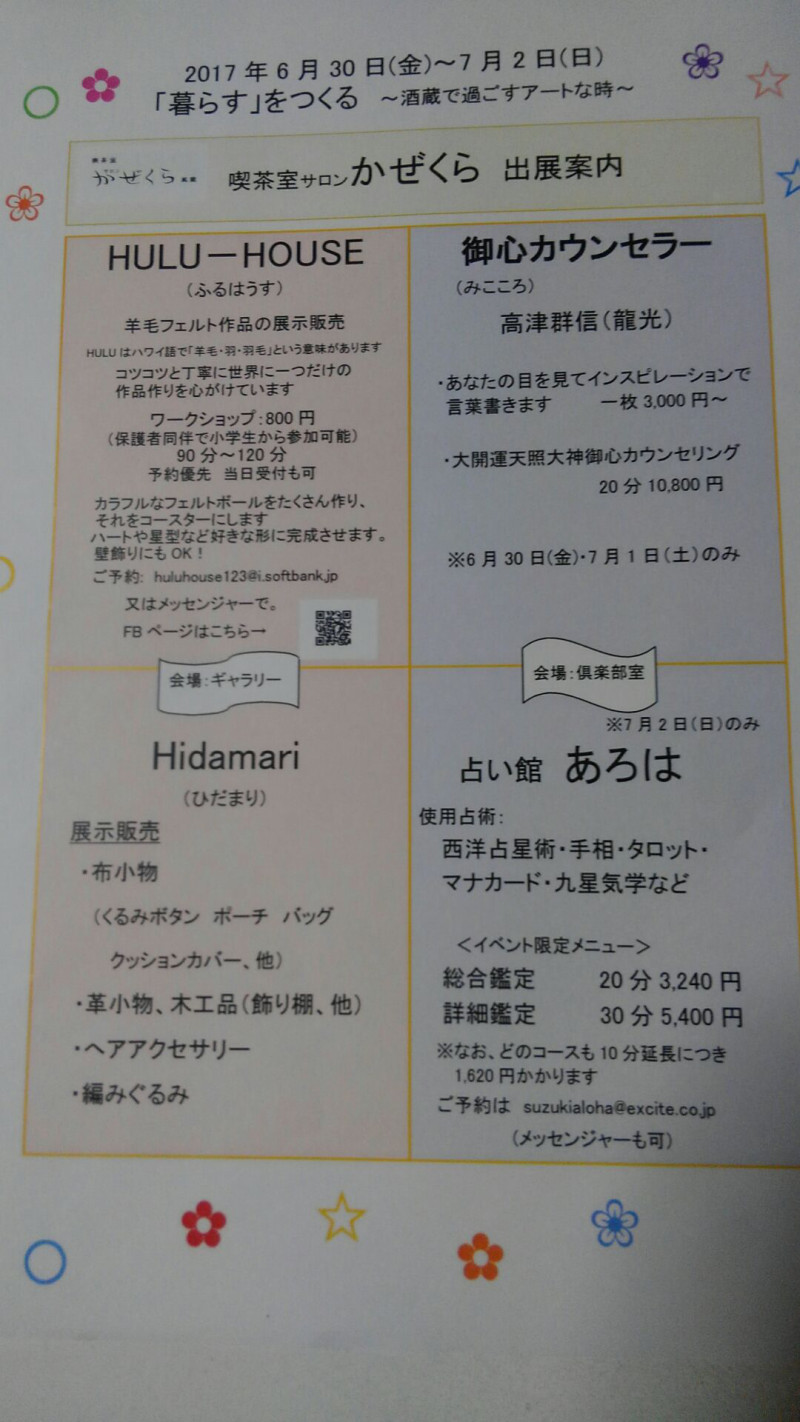 2017年6月30日(金)～7月2日(日)
「暮らす」をつくる　～酒蔵で過ごすアートな時～
がぜくら
喫茶室サロンかぜくら　出展案内
HULU－HOUSE
（ふるはうす）
羊毛フェルト作品の展示販売
HULUはハワイ語で「羊毛・羽・羽毛」という意味があります
コツコツと丁寧に世界に一つだけの
作品作りを心がけています
ワークショップ：800円
（保護者同伴で小学生から参加可能）
90分～120分
予約優先　当日受付も可
カラフルなフェルトボールをたくさん作り、
それをコースターにします
ハートや星型など好きな形に完成させます。
壁飾りにもOK！
ご予約: huluhouse123@i.softbank.jp
又はメッセンジャーで。
FBページはこちら→
会場：ギャラリー
御心カウンセラー
（みこころ）
高津群信（龍光）
・あなたの目を見てインスピレーションで
言葉書きます　　一枚3,000円～
・大開運天照大神御心カウンセリング
20分10,800円
※6月30日(金)・7月1日(土)のみ
会場：倶楽部室
Hidamari
（ひだまり）
展示販売
・布小物
（くるみボタン　ポーチ　バッグ
クッションカバー、他）
・革小物、木工品（飾り棚、他）
・ヘアアクセサリー
・編みぐるみ
※7月2日(日)のみ
占い館　あろは
使用占術：
西洋占星術・手相・タロット・
マナカード・九星気学など
＜イベント限定メニュー＞
総合鑑定　　20分3,240円
詳細鑑定　　30分5,400円
※なお、どのコースも10分延長につき
1,620円かかります
ご予約は　suzukialoha@excite.co.jp
（メッセンジャーも可）